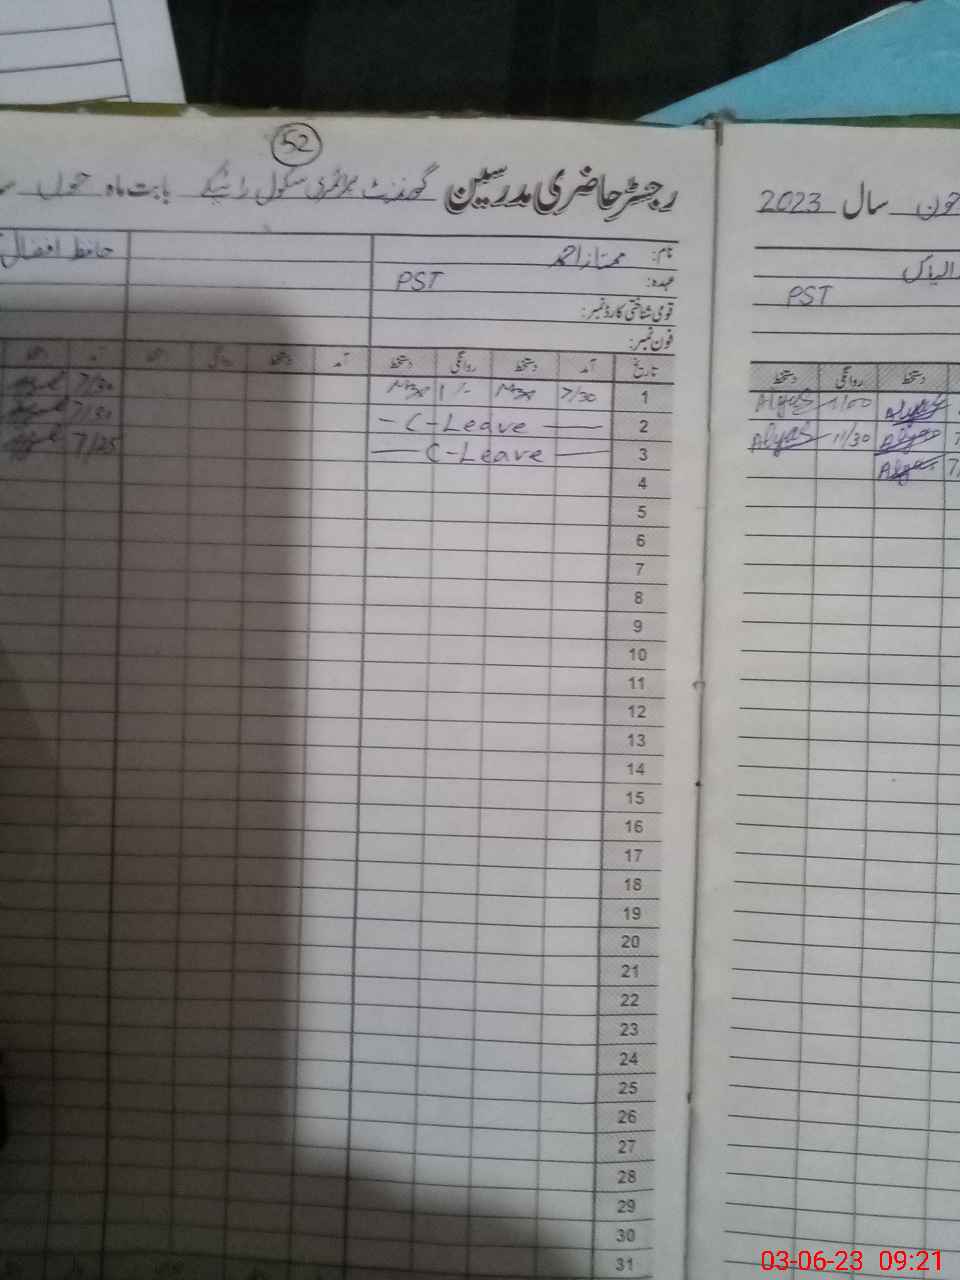 52
رجسٹر حاضری مدرسین گورنمنٹ پرائمری سکول بابت ماہ جون
جون سال 2023
نام: ممتاز احمد
حافظ افضال
عہدہ: PST
الیاس
PST
قومی شناختی کارڈ نمبر:
فون نمبر:
تاریخ آمد دستخط روانگی دستخط آمد دستخط روانگی دستخط آمد دستخط
دستخط روانگی دستخط
1 7/30 1/- 7/30
Alyas 1/00 Alyas
2 - C-Leave - 7/30
Alyas 11/30 Alyas 7
3 - C-Leave - 7/25
Alyas 7/
4
5
6
7
8
9
10
11
12
13
14
15
16
17
18
19
20
21
22
23
24
25
26
27
28
29
30
31
03-06-23 09:21